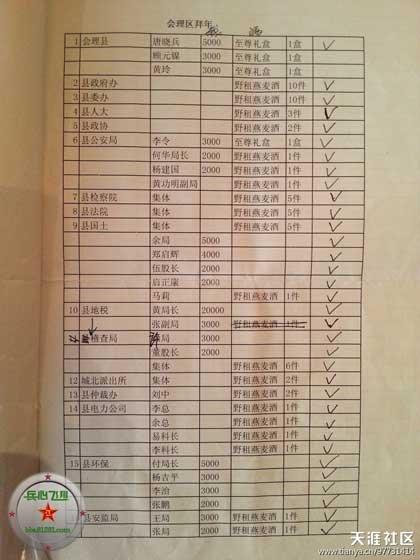 会理区拜年
钱 酒
1 会理县 唐晓兵 5000 至尊礼盒 1盒 ✓
顾元镍 3000 至尊礼盒 1盒
黄玲 3000 至尊礼盒 1盒
2 县政府办 野租燕麦酒 10件 ✓
3 县委办 野租燕麦酒 10件 ✓
4 县人大 野租燕麦酒 3件 ✓
5 县政协 野租燕麦酒 2件 ✓
6 县公安局 李令 3000 至尊礼盒 1盒 ✓
何华局长 2000 野租燕麦酒 1件 ✓
杨建国 2000 野租燕麦酒 1件 ✓
黄功明副局 野租燕麦酒 1件 ✓
7 县检察院 集体 野租燕麦酒 5件 ✓
8 县法院 集体 野租燕麦酒 5件 ✓
9 县国土 集体 野租燕麦酒 5件 ✓
余局 5000 ✓
郑启辉 4000 ✓
伍股长 2000 ✓
启正康 2000 ✓
马莉 野租燕麦酒 1件 ✓
10 县地税 黄局长 20000 ✓
张副局 3000 野租燕麦酒 1件 ✓
稽查局 局 3000 ✓
董股长 2000 ✓
集体 野租燕麦酒 6件 ✓
12 城北派出所 集体 野租燕麦酒 2件 ✓
13 县仲裁办 刘中 野租燕麦酒 2件 ✓
14 县电力公司 李总 野租燕麦酒 1件 ✓
余总 野租燕麦酒 1件 ✓
易科长 野租燕麦酒 1件 ✓
李科长 野租燕麦酒 1件 ✓
15 县环保 付局长 5000 ✓
杨吉平 3000 ✓
李治 3000 ✓
张鹏 2000 ✓
县安监局 王局 3000 野租燕麦酒 1件 ✓
张局 2000 野租燕麦酒 1件 ✓
民心飞想
bbs.81281.com
天涯社区
www.tianya.cn/97731414